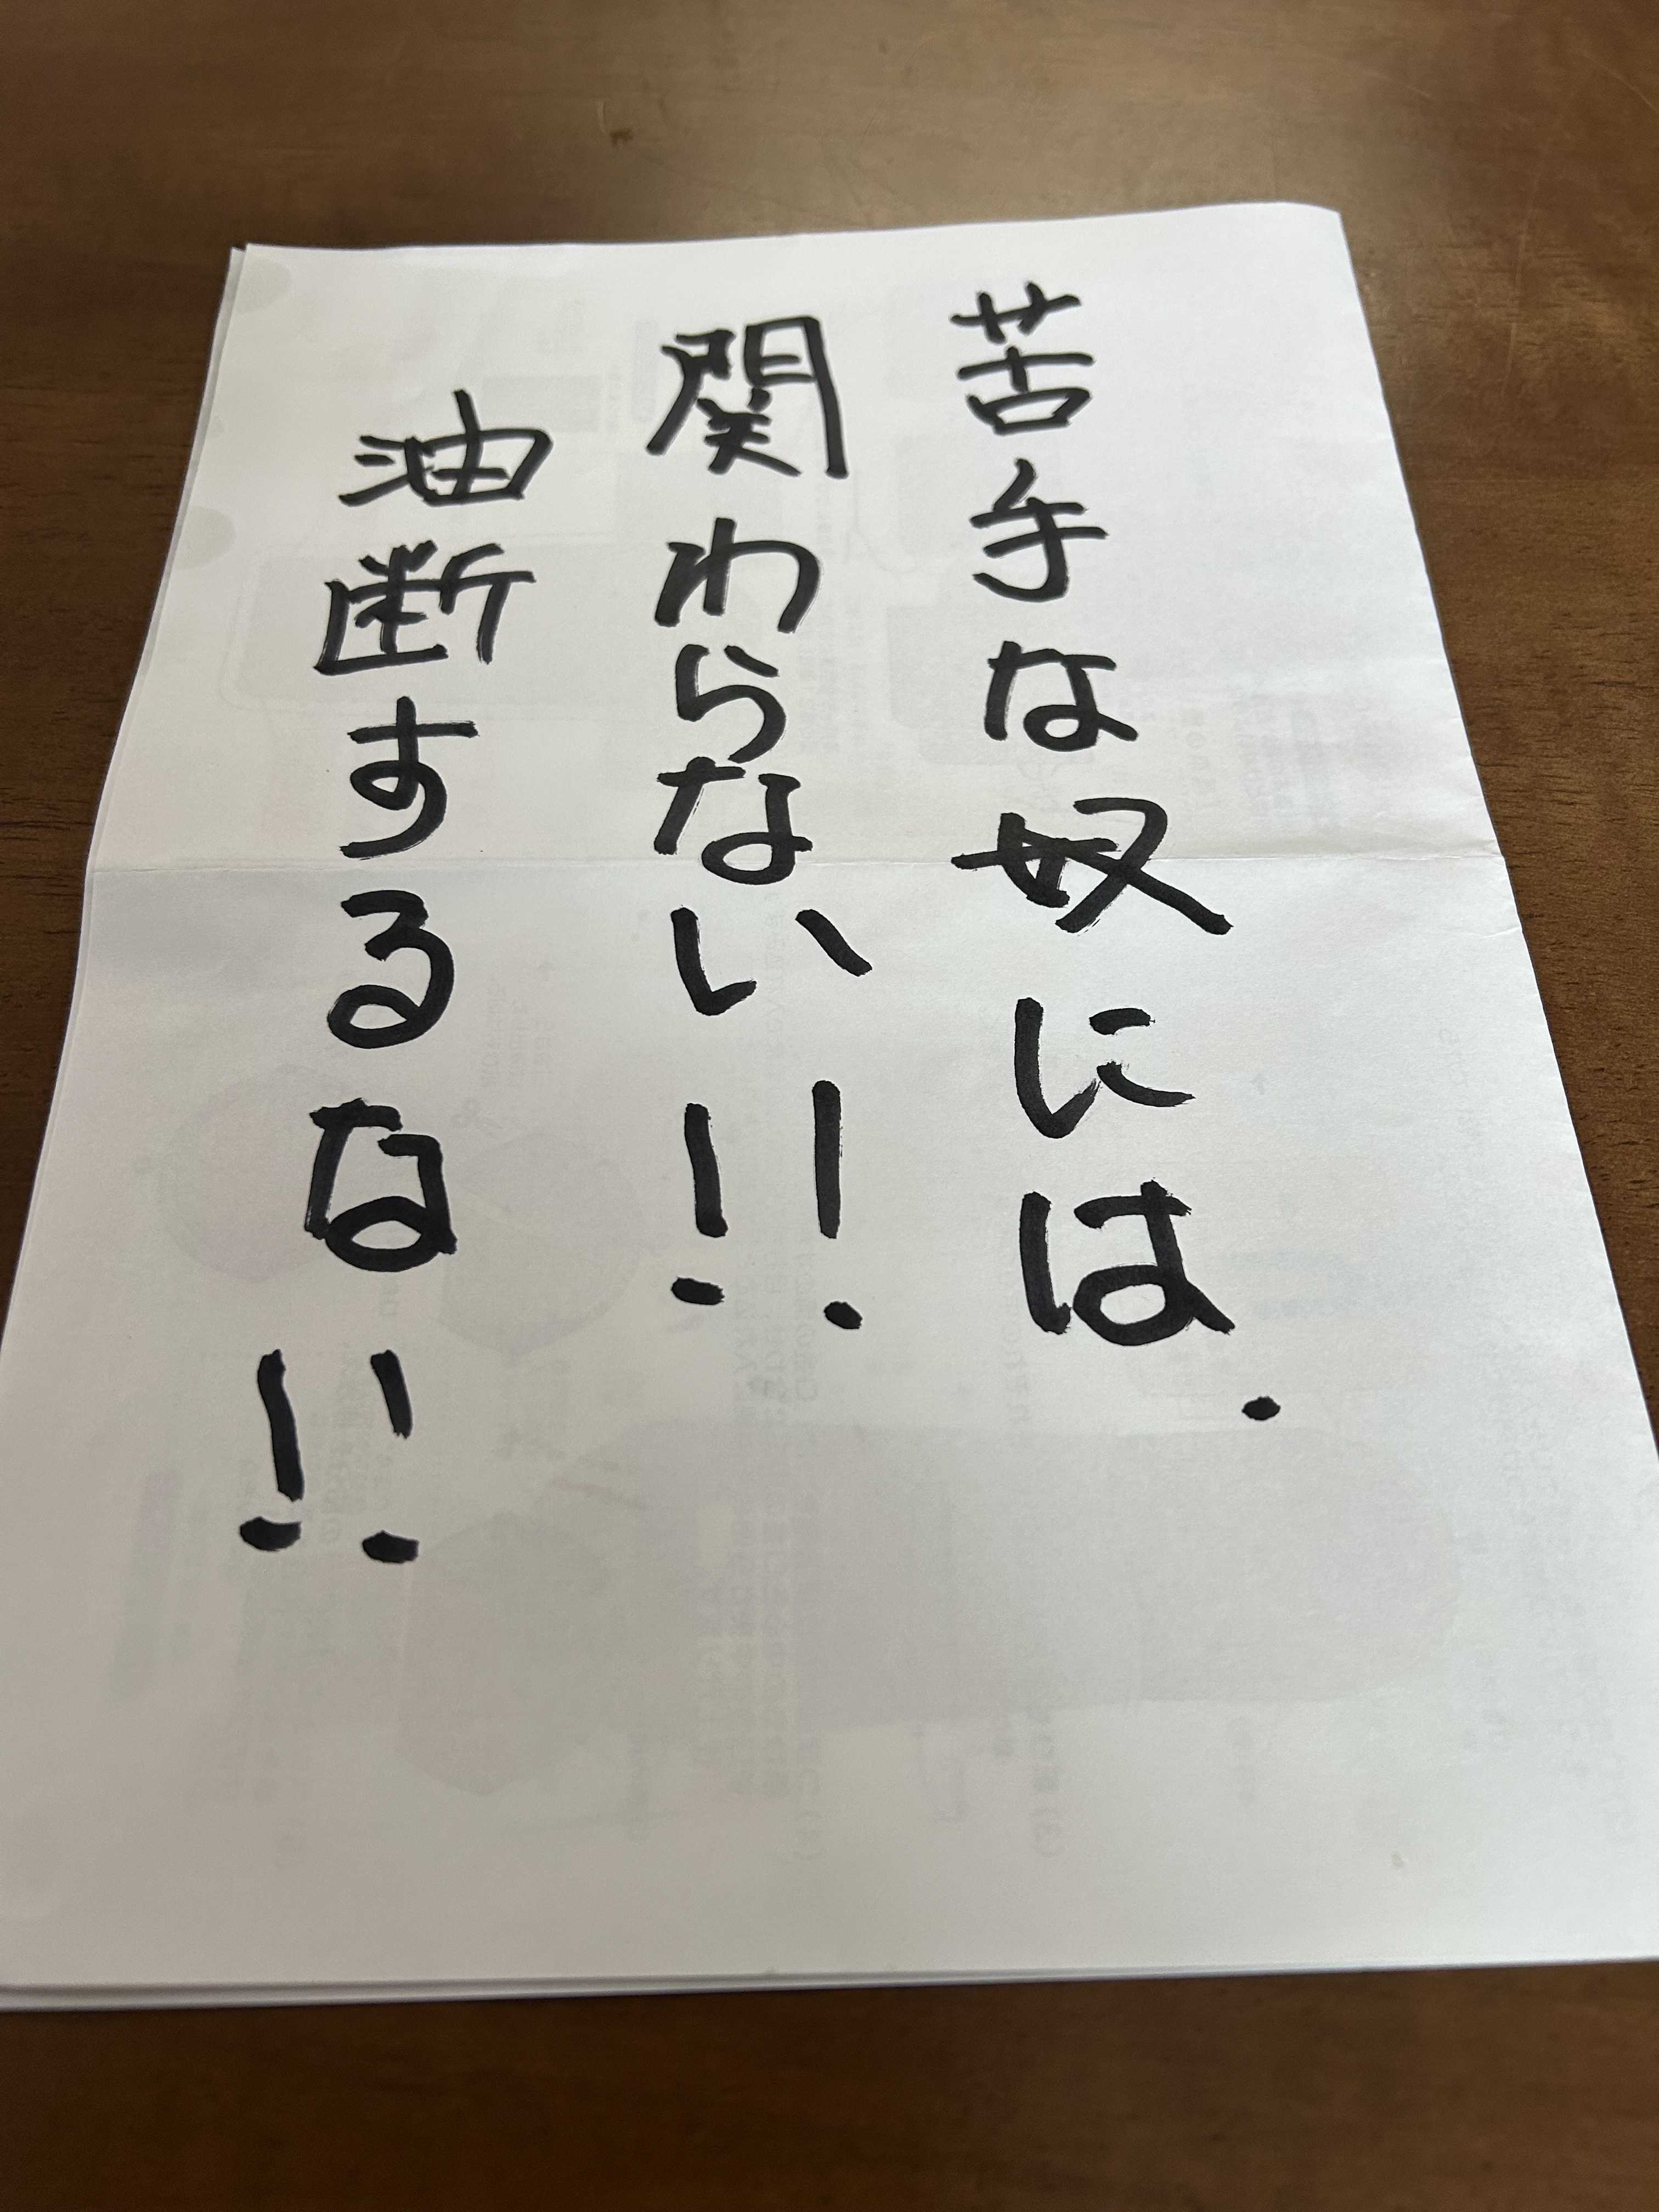 苦手な奴には.
関わらない!!
油断するな!!